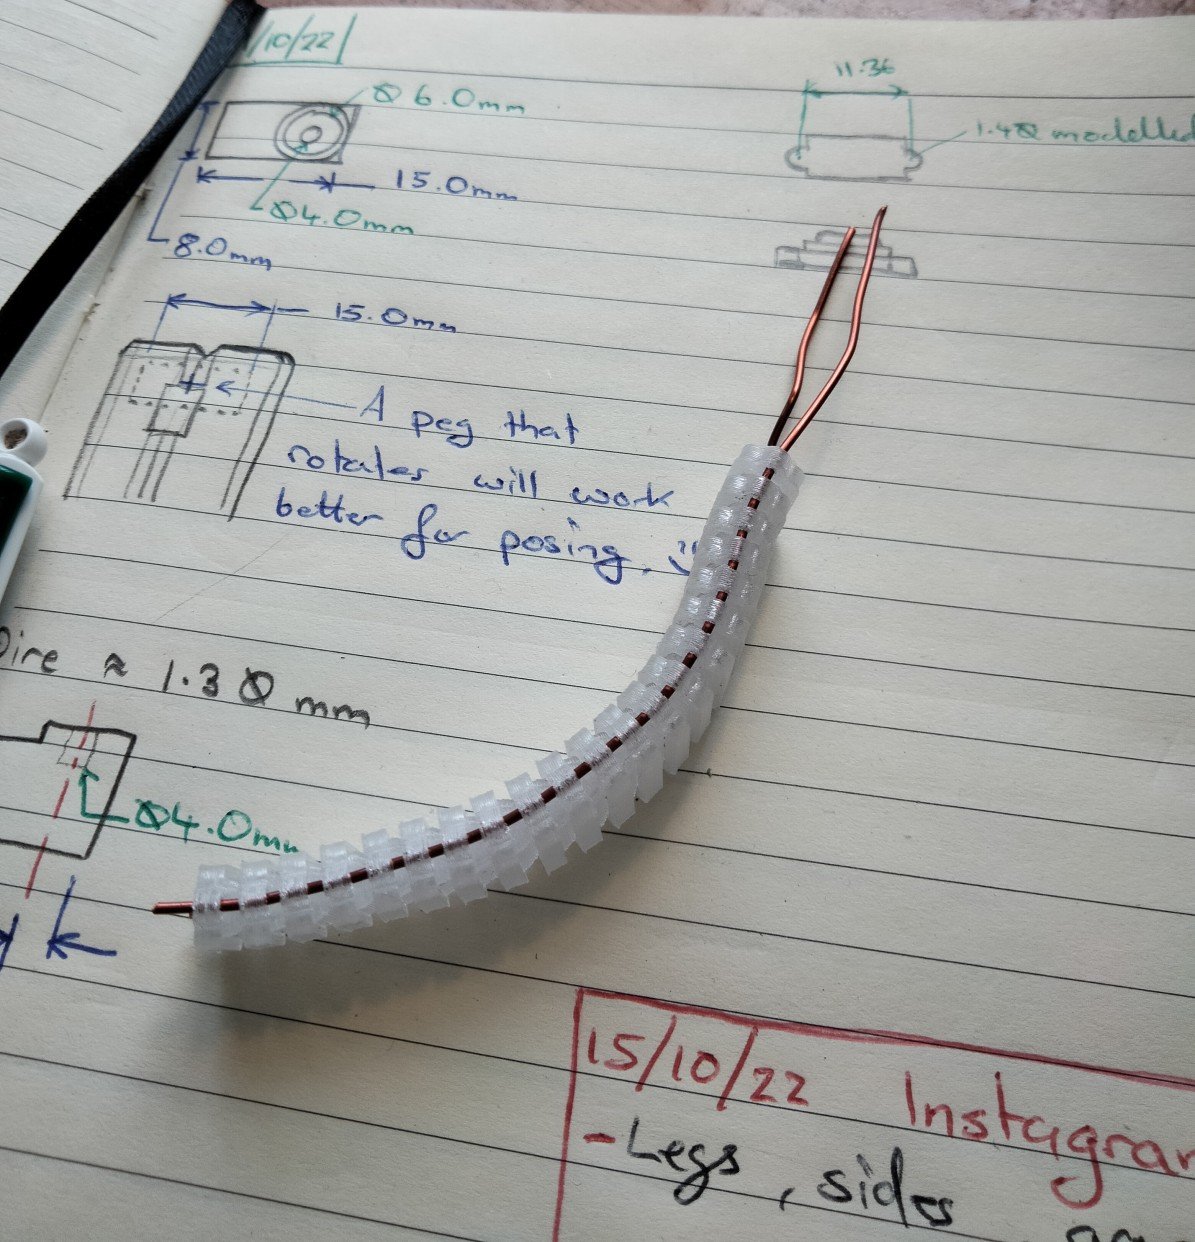 /10/22
Ø 6.0mm
11.36
1.4Ø modelled
15.0mm
Ø4.0mm
8.0mm
15.0mm
A peg that
rotates will work
better for posing.
Wire ≈ 1.3 Ø mm
Ø4.0mm
15/10/22 Instagram
-Legs, sides